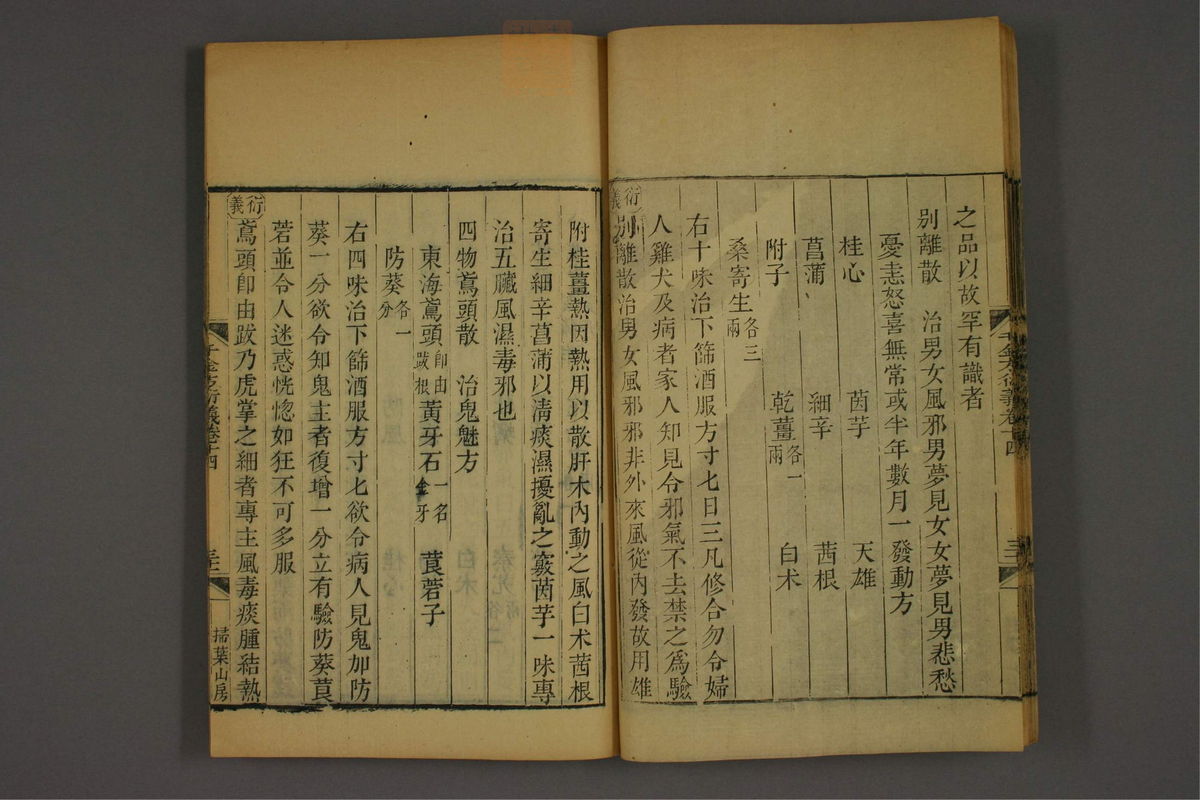 之品以故罕有識者
別離散　治男女風邪男夢見女女夢見男悲愁
憂恚怒喜無常或半年數月一發動方
桂心　茵芋　天雄
菖蒲　細辛　茜根
附子　乾薑各一兩　白术
桑寄生各三兩
右十味治下篩酒服方寸匕日三凡修合勿令婦
人雞犬及病者家人知見令邪氣不去禁之為驗
衍義
別離散治男女風邪邪非外來風從內發故用雄
附桂薑熱因熱用以散肝木內動之風白术茜根
寄生細辛菖蒲以清痰濕擾亂之竅茵芋一味專
治五臟風濕毒邪也
四物鳶頭散　治鬼魅方
東海鳶頭卽由跋根　黃牙石一名金牙　莨菪子
防葵各一分
右四味治下篩酒服方寸匕欲令病人見鬼加防
葵一分欲令知鬼主者復增一分立有驗防葵莨
菪並令人迷惑恍惚如狂不可多服
衍義
鳶頭卽由跋乃虎掌之細者專主風毒痰腫結熱
千金方衍義卷十四
掃葉山房